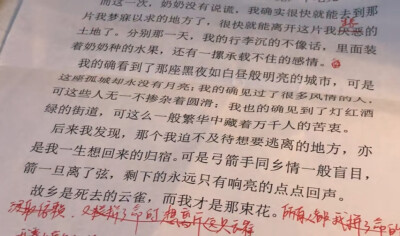 而这一次，奶奶没有说谎，我确实很快就能去到那
片我梦寐以求的地方了，很快就能离开这片我厌恶的
土地了。分别那一天，我的行李沉的不像话，里面装
着奶奶种的水果，还有一摞承载不住的感情。
我的确看到了那座黑夜如白昼般明亮的城市，可是
这座孤城却永没有月亮；我的确见过了很多风情的人，
可这些人无一不掺杂着圆滑；我也的确见到了灯红酒
绿的街道，可这么一般繁华中藏着万千人的苦衷。
后来我发现，那个我迫不及待想要逃离的地方，亦
是我一生想回来的归宿。可是弓箭手同乡情一般盲目，
箭一旦离了弦，剩下的永远只有响亮的点点回声。
故乡是死去的云雀，而我才是那束花。